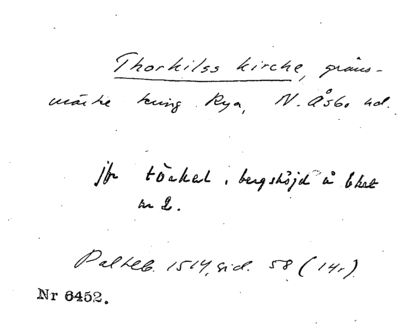 Thorkilss kirche, gräns-
märke kring Rya, N. Åsbo hd.
jfr törkel, bergshöjd å
nr 2.
Palteb. 1514, sid. 58 (14r)
Nr 6452.